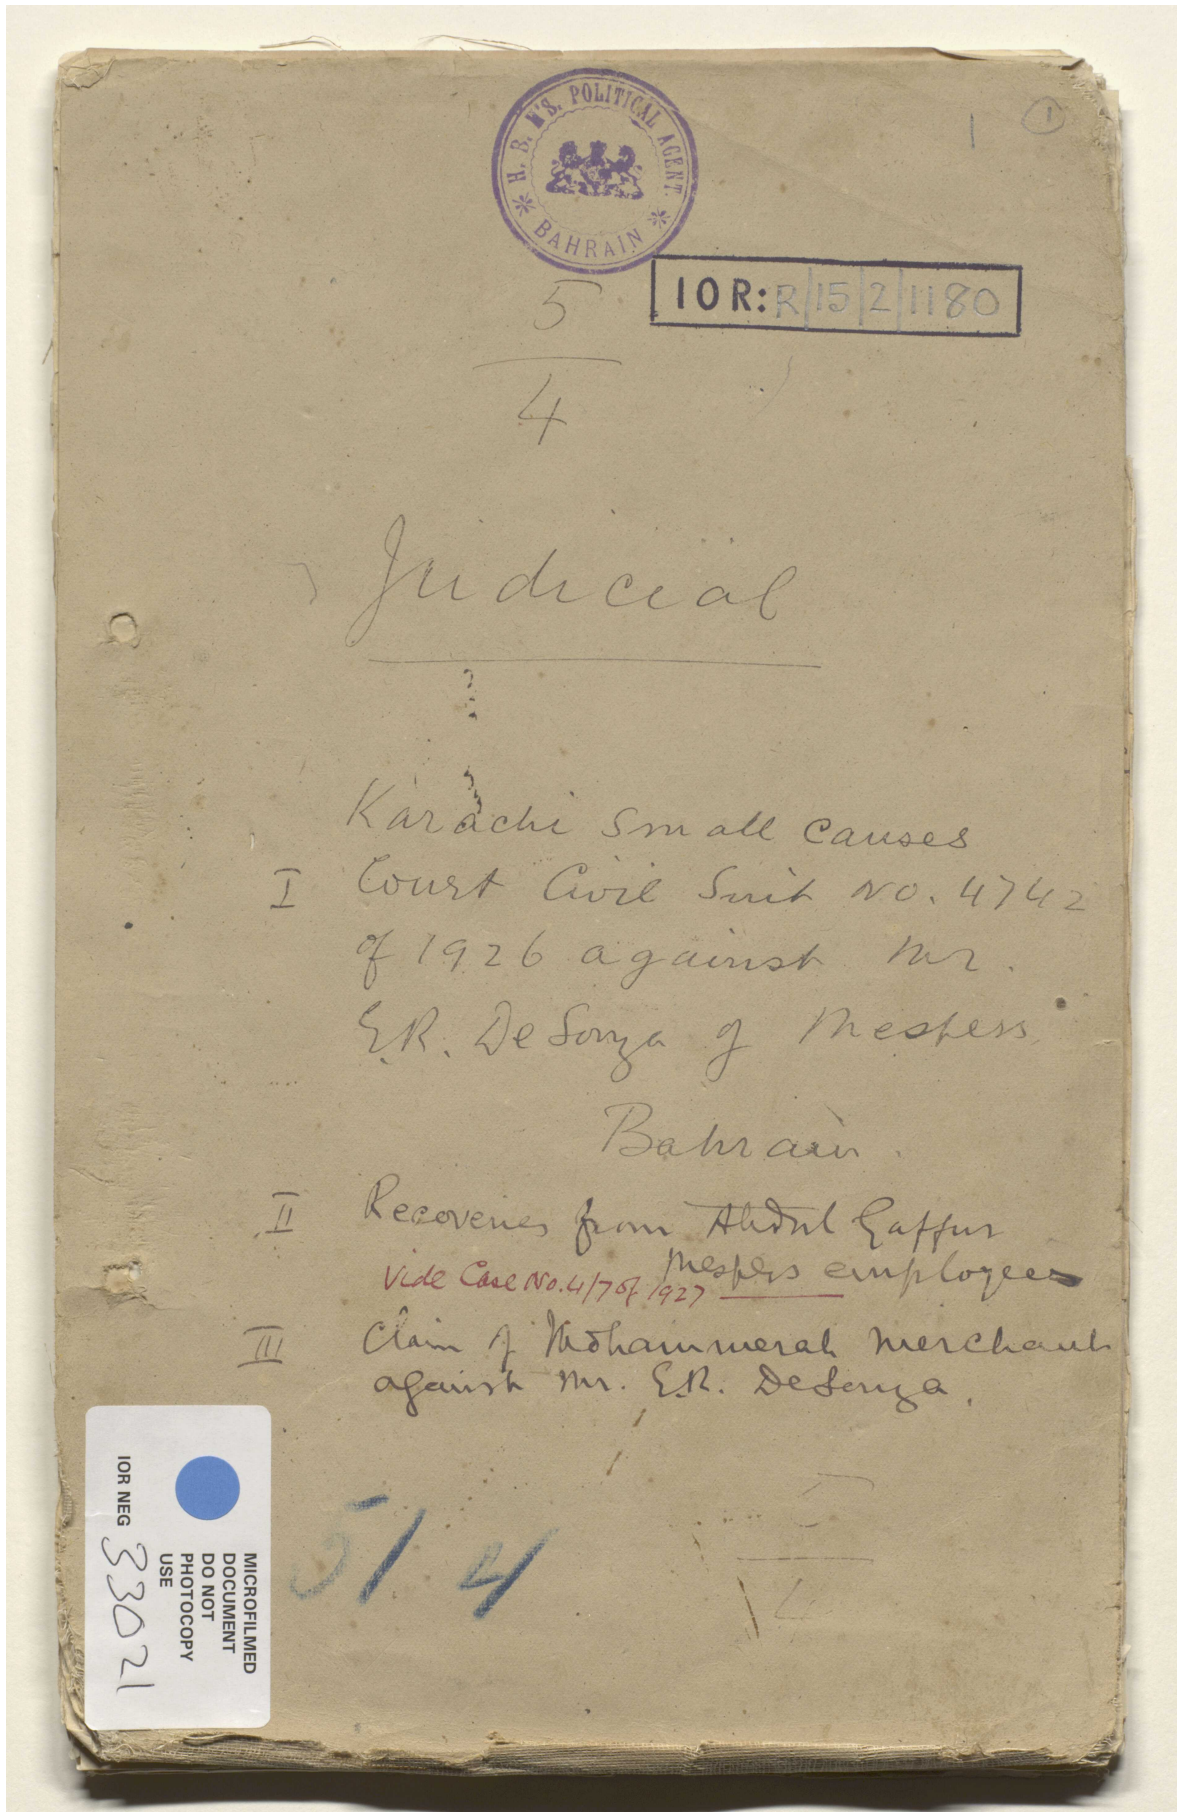 H. B. M'S. POLITICAL AGENT.
BAHRAIN
1
1
IOR: R/15/2/1180
5
4
Judicial
Karachi Small Causes
I Court Civil Suit No. 4742
of 1926 against Mr.
E.R. DeSouza of Mespers
Bahrain.
II Recoveries from Abdul Gaffur
Mespers employees
Vide Case No. 4/7 of 1927
III Claim of Mohammerah Merchants
against Mr. E.R. DeSouza.
5/4
5
4
IOR NEG 33021
MICROFILMED
DOCUMENT
DO NOT
PHOTOCOPY
USE